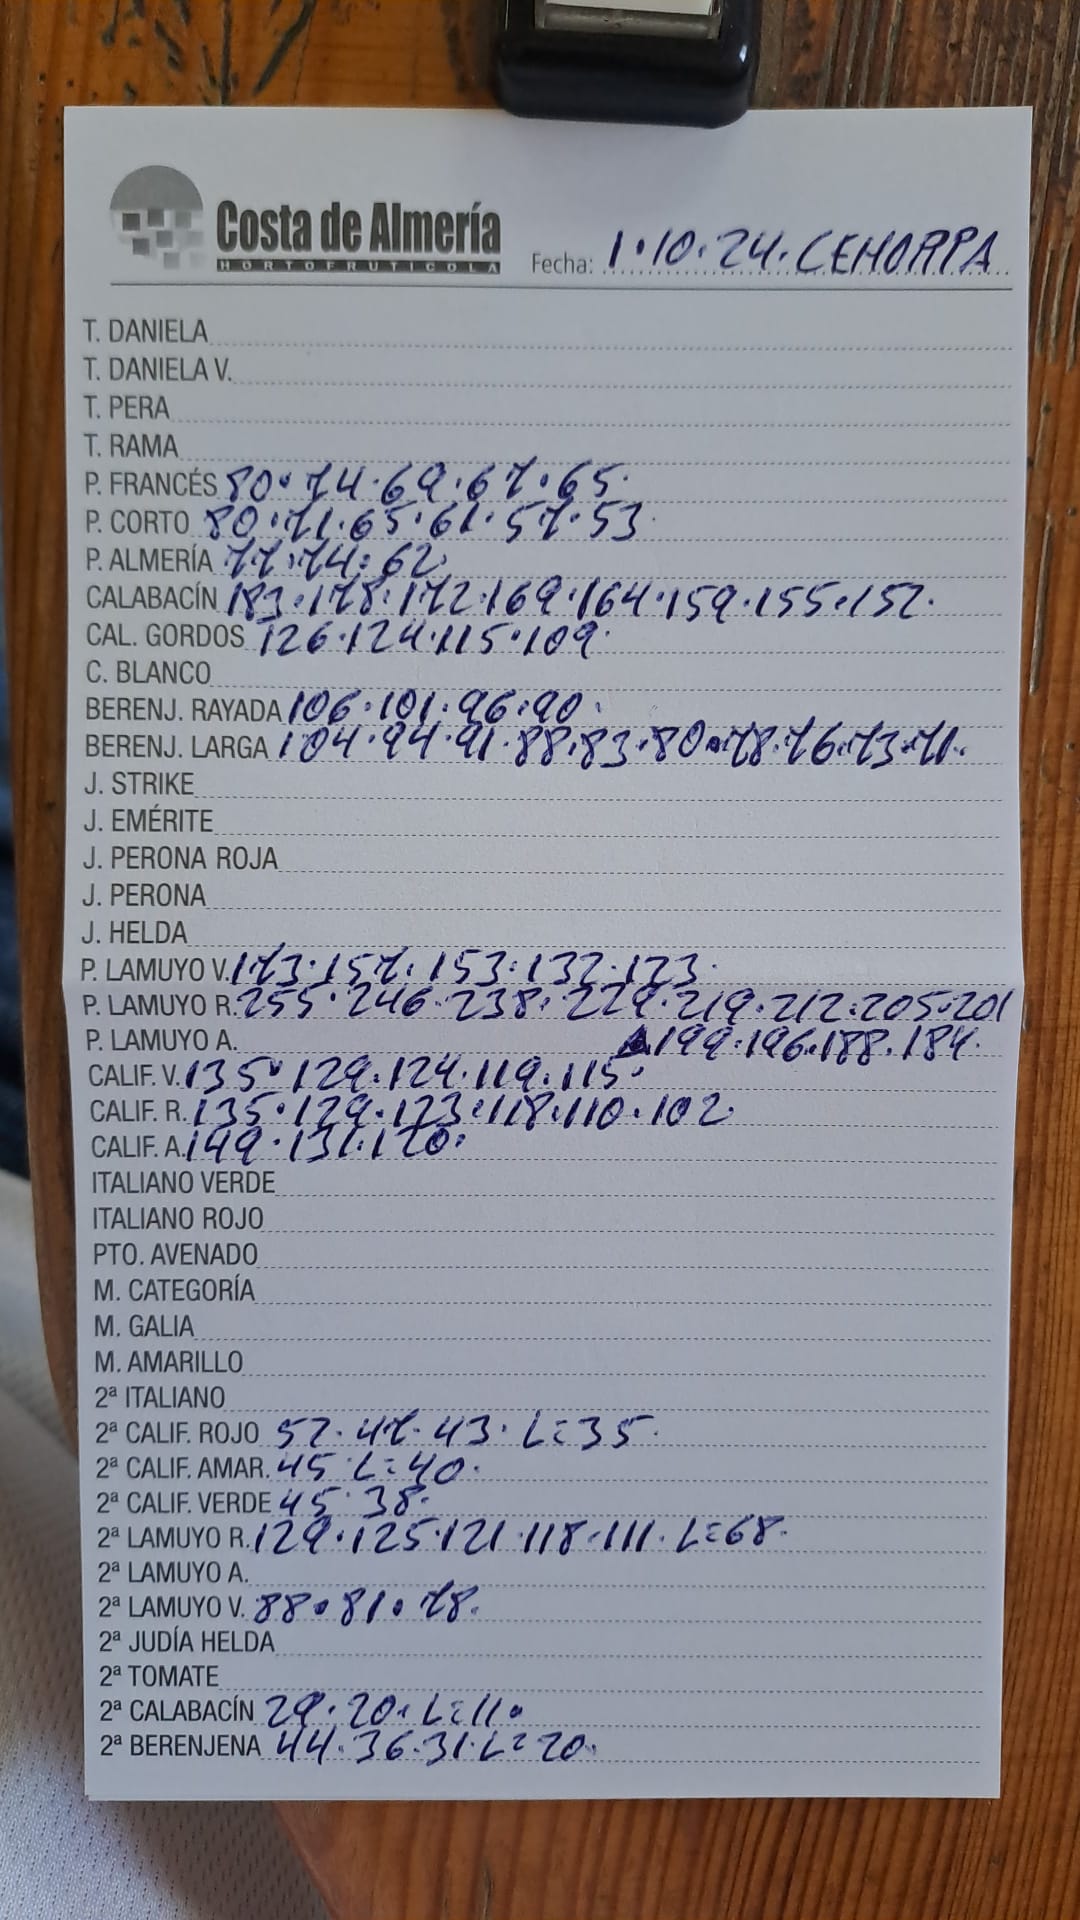 Costa de Almería
HORTOFRUTICOLA
Fecha: 1·10·24·CEHORPA
T. DANIELA
T. DANIELA V.
T. PERA
T. RAMA
P. FRANCÉS 80·74·69·67·65·
P. CORTO 80·71·65·61·57·53·
P. ALMERÍA 77·74·62·
CALABACÍN 183·178·172·169·164·159·155·152·
CAL. GORDOS 126·124·115·109·
C. BLANCO
BERENJ. RAYADA 106·101·96·90·
BERENJ. LARGA 104·94·91·88·83·80·78·76·73·71·
J. STRIKE
J. EMÉRITE
J. PERONA ROJA
J. PERONA
J. HELDA
P. LAMUYO V. 173·157·153·132·123·
P. LAMUYO R. 255·246·238·229·219·212·205·201
P. LAMUYO A. 199·196·188·184·
CALIF. V. 135·129·124·119·115·
CALIF. R. 135·129·123·118·110·102·
CALIF. A. 149·131·120·
ITALIANO VERDE
ITALIANO ROJO
PTO. AVENADO
M. CATEGORÍA
M. GALIA
M. AMARILLO
2ª ITALIANO
2ª CALIF. ROJO 52·47·43·L=35·
2ª CALIF. AMAR. 45·L=40·
2ª CALIF. VERDE 45·38·
2ª LAMUYO R. 129·125·121·118·111·L=68·
2ª LAMUYO A.
2ª LAMUYO V. 88·81·78·
2ª JUDÍA HELDA
2ª TOMATE
2ª CALABACÍN 29·20·L=11·
2ª BERENJENA 44·36·31·L=20·